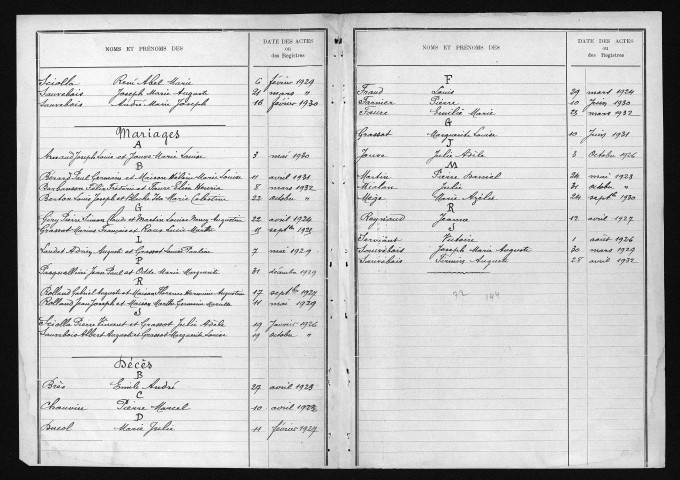 NOMS ET PRÉNOMS DES
DATE DES ACTES
ou
des Registres
Sciolla René Abel Marie 6 février 1929
Sauvebois Joseph Marie Auguste 21 mars "
Sauvebois André Marie Joseph 16 février 1930
Mariages
A
Arnaud Joseph Louis et Jouve Marie Louise 3 mai 1930
B
Bérard Paul Germain et Maison Marie Louise 11 avril 1931
Félix Frédéric et Faure Elia 8 mars 1932
Berton Louis Joseph et Blache Ida Marie Célestine 22 octobre "
G
Géry Pierre Simon et Martin Louise Augustine 22 avril 1924
Grassot Marius François et Roux Lucie 15 septbre 1928
L
Auguste et Grassot Louise Pauline 7 mai 1929
P
Jean Paul et Odde Marie Marguerite 31 décembre 1929
R
Rolland Gabriel Auguste et Maison Florence Augustine 17 septbre 1924
Rolland Jean Joseph et Maison Marthe Germaine 11 mai 1929
S
Sciolla Pierre Vincent et Grassot Julie Adèle 19 Janvier 1926
Sauvebois Albert Auguste et Grassot Marguerite Louise 19 octobre "
Décès
B
Brès Emile André 27 avril 1923
C
Chauvin Pierre Marcel 10 avril 1923
D
Marie Julie 11 février 1927
NOMS ET PRÉNOMS DES
DATE DES ACTES
ou
des Registres
F
Fraud Louis 29 mars 1924
Farnier Pierre 10 Juin 1930
Faure Emilie Marie 23 mars 1932
G
Grassot Marguerite Louise 10 Juin 1931
J
Jouve Julie Adèle 3 Octobre 1926
M
Martin Pierre 26 mai 1923
Julie 31 octobre "
Mège Marie 24 septbre 1930
R
Reynaud Jeanne 12 avril 1927
S
Victoire 1 août 1926
Sauvebois Joseph Marie Auguste 30 mars 1929
Sauvebois Firmin Auguste 28 avril 1932
72 144